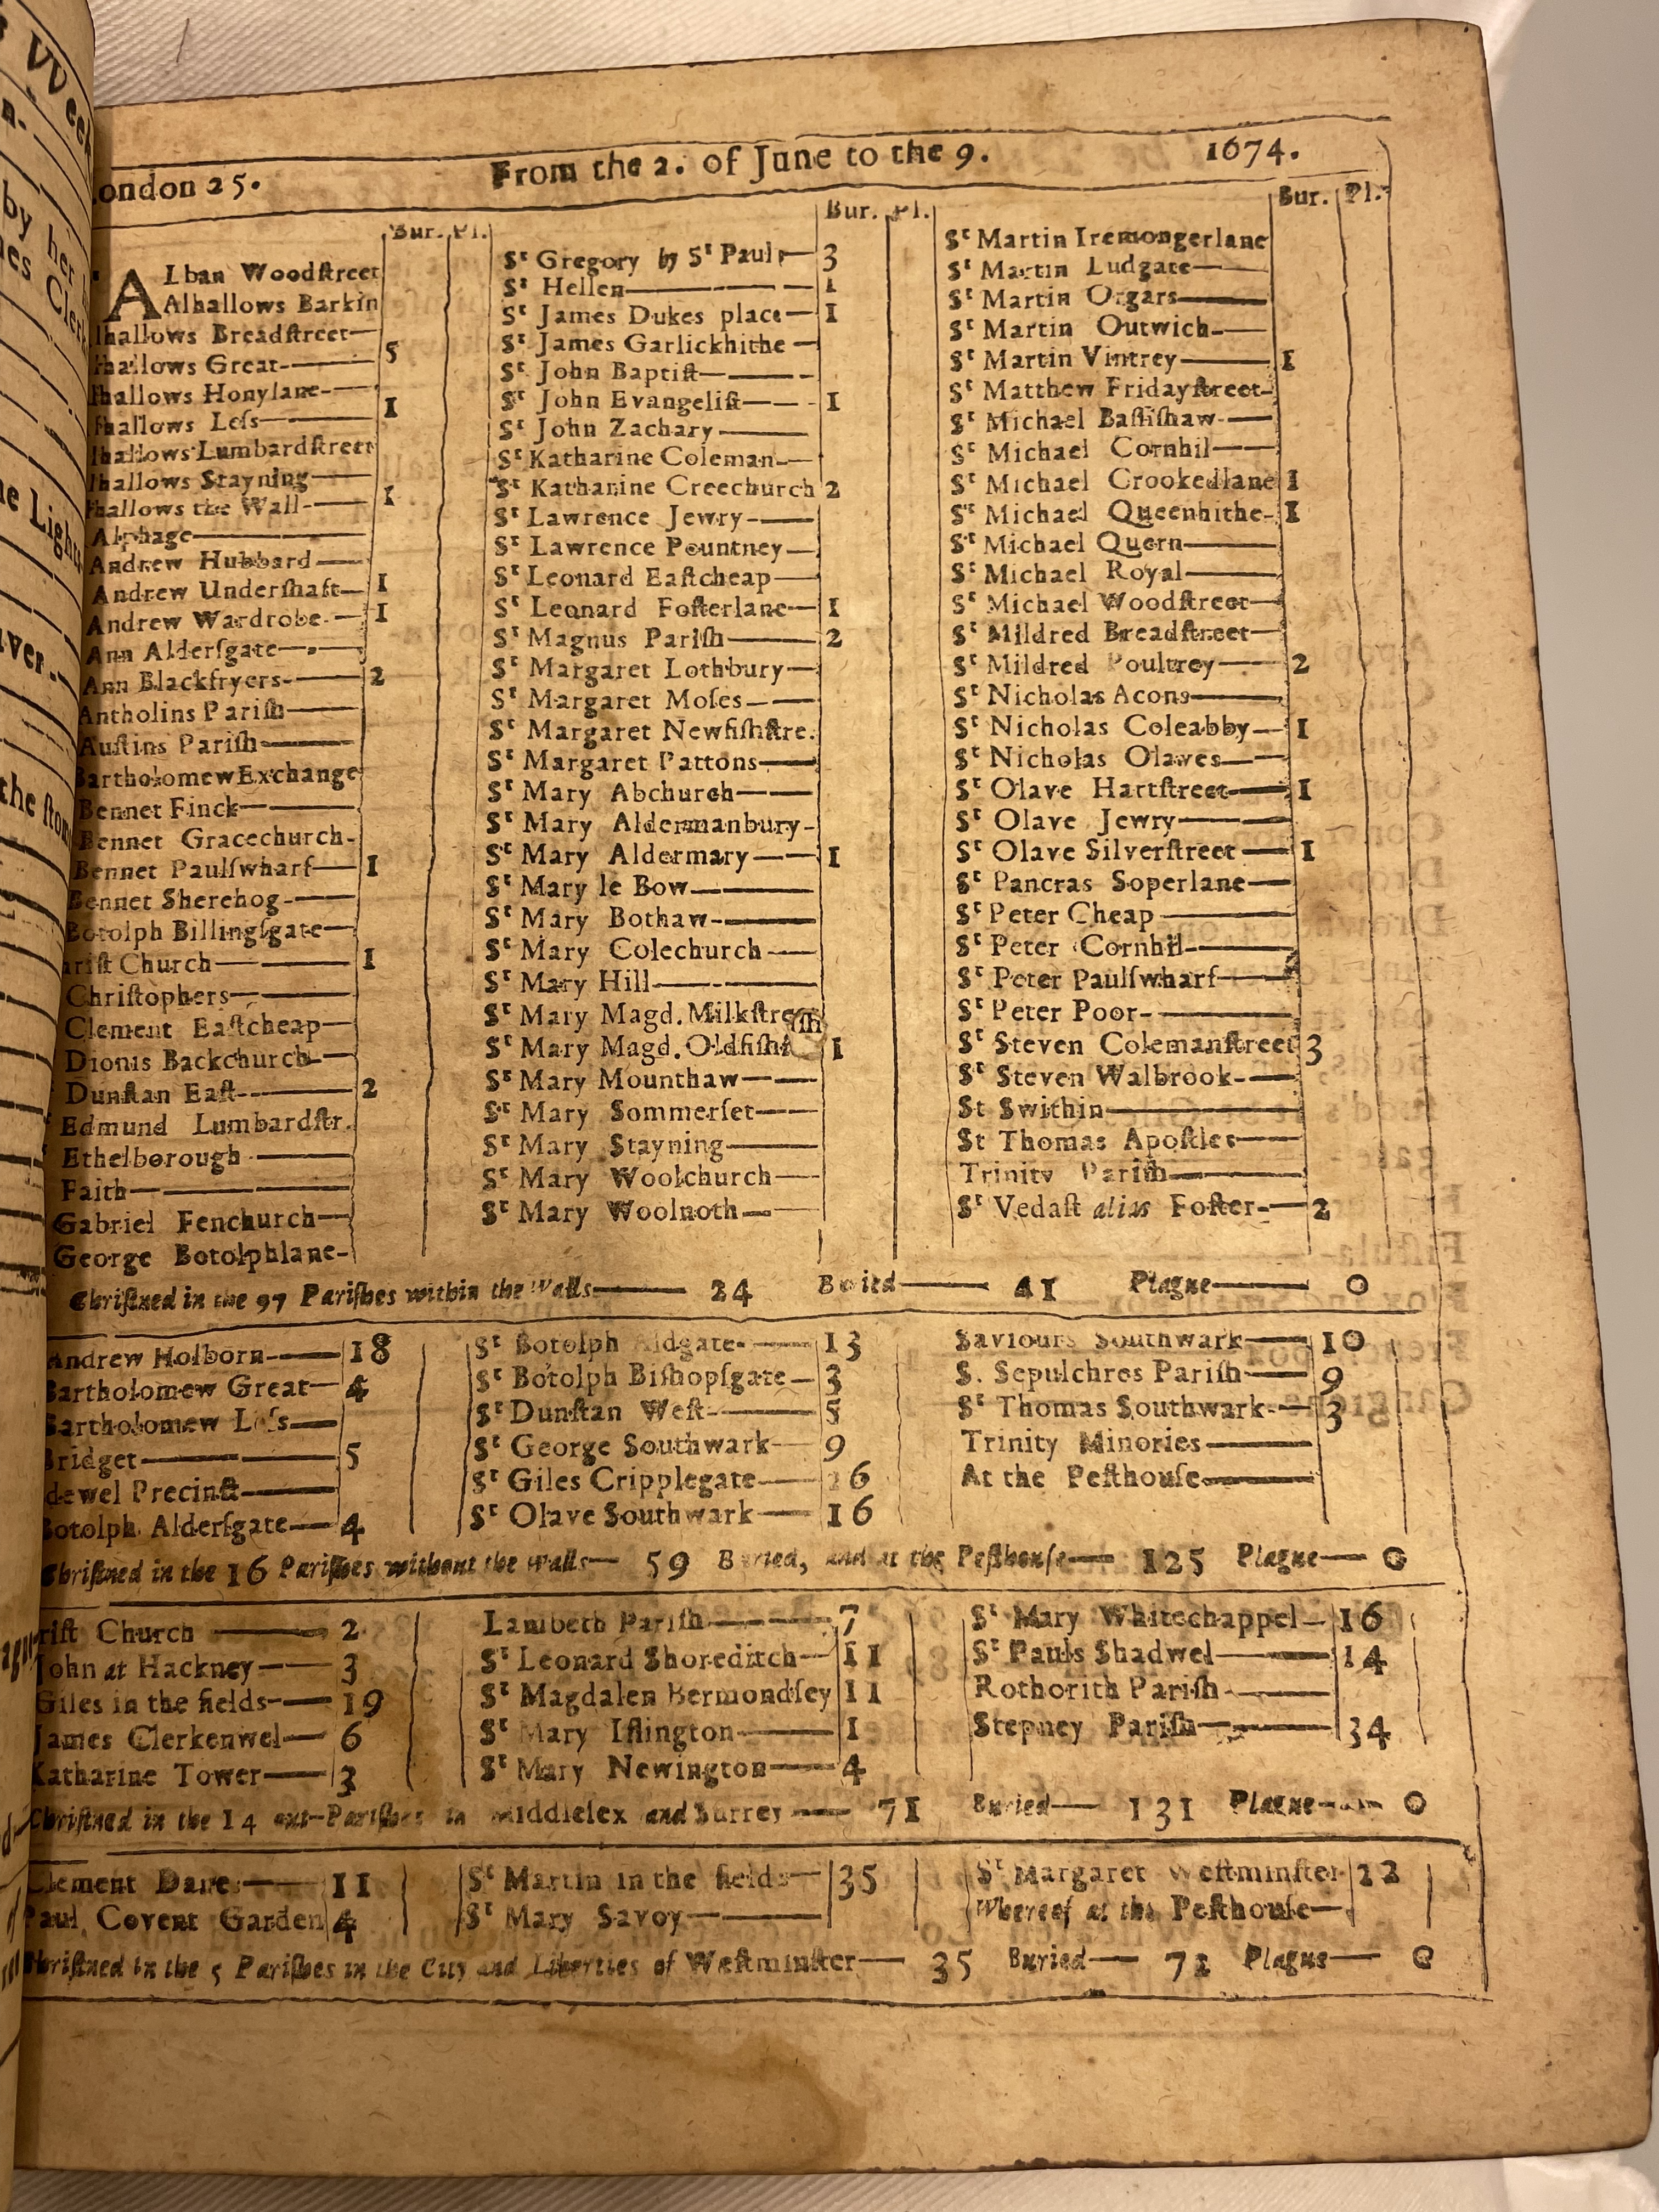 ondon 25.
From the 2. of June to the 9.
1674.
Bur. Pl.
ALban Woodſtreet
Alhallows Barkin
lhallows Breadſtreet
hallows Great 5
hallows Honylane
hallows Leſs 1
lhallows Lumbardſtreet
lhallows Stayning
hallows the Wall 1
Alphage
Andrew Hubbard
Andrew Underſhaft 1
Andrew Wardrobe 1
Ann Alderſgate
Ann Blackfryers 2
Antholins Pariſh
Auſtins Pariſh
Bartholomew Exchange
Bennet Finck
Bennet Gracechurch
Bennet Paulſwharf 1
Bennet Sherehog
Botolph Billingſgate
riſt Church 1
Chriſtophers
Clement Eaſtcheap
Dionis Backchurch
Dunſtan Eaſt 2
Edmund Lumbardſtr.
Ethelborough
Faith
Gabriel Fenchurch
George Botolphlane
Bur. Pl.
Sᵗ Gregory by Sᵗ Pauls 3
Sᵗ Hellen 1
Sᵗ James Dukes place 1
Sᵗ James Garlickhithe
Sᵗ John Baptiſt
Sᵗ John Evangeliſt 1
Sᵗ John Zachary
Sᵗ Katharine Coleman
Sᵗ Katharine Creechurch 2
Sᵗ Lawrence Jewry
Sᵗ Lawrence Pountney
Sᵗ Leonard Eaſtcheap
Sᵗ Leonard Foſterlane 1
Sᵗ Magnus Pariſh 2
Sᵗ Margaret Lothbury
Sᵗ Margaret Moſes
Sᵗ Margaret Newfiſhſtre.
Sᵗ Margaret Pattons
Sᵗ Mary Abchurch
Sᵗ Mary Aldermanbury
Sᵗ Mary Aldermary 1
Sᵗ Mary le Bow
Sᵗ Mary Bothaw
Sᵗ Mary Colechurch
Sᵗ Mary Hill
Sᵗ Mary Magd. Milkſtre
Sᵗ Mary Magd. Oldfiſh 1
Sᵗ Mary Mounthaw
Sᵗ Mary Sommerſet
Sᵗ Mary Stayning
Sᵗ Mary Woolchurch
Sᵗ Mary Woolnoth
Bur. Pl.
Sᵗ Martin Iremongerlane
Sᵗ Martin Ludgate
Sᵗ Martin Orgars
Sᵗ Martin Outwich
Sᵗ Martin Vintrey 1
Sᵗ Matthew Fridayſtreet
Sᵗ Michael Baſſiſhaw
Sᵗ Michael Cornhil
Sᵗ Michael Crookedlane 1
Sᵗ Michael Queenhithe 1
Sᵗ Michael Quern
Sᵗ Michael Royal
Sᵗ Michael Woodſtreet
Sᵗ Mildred Breadſtreet
Sᵗ Mildred Poultrey 2
Sᵗ Nicholas Acons
Sᵗ Nicholas Coleabby 1
Sᵗ Nicholas Olaves
Sᵗ Olave Hartſtreet 1
Sᵗ Olave Jewry
Sᵗ Olave Silverſtreet 1
Sᵗ Pancras Soperlane
Sᵗ Peter Cheap
Sᵗ Peter Cornhil
Sᵗ Peter Paulſwharf
Sᵗ Peter Poor
Sᵗ Steven Colemanſtreet 3
Sᵗ Steven Walbrook
St Swithin
St Thomas Apoſtle
Trinity Pariſh
Sᵗ Vedaſt alias Foſter 2
Chriſtned in the 97 Pariſhes within the Walls 24 Buried 41 Plague 0
Andrew Holborn 18
Bartholomew Great 4
Bartholomew Leſs
Bridget 5
dewel Precinct
Botolph Alderſgate 4
Sᵗ Botolph Aldgate 13
Sᵗ Botolph Biſhopſgate 3
Sᵗ Dunſtan Weſt 5
Sᵗ George Southwark 9
Sᵗ Giles Cripplegate 26
Sᵗ Olave Southwark 16
Saviours Southwark 10
S. Sepulchres Pariſh 9
Sᵗ Thomas Southwark 3
Trinity Minories
At the Peſthouſe
Chriſtned in the 16 Pariſhes without the Walls 59 Buried, and at the Peſthouſe 125 Plague 0
riſt Church 2
John at Hackney 3
Giles in the fields 19
James Clerkenwel 6
Katharine Tower 3
Lambeth Pariſh 7
Sᵗ Leonard Shoreditch 11
Sᵗ Magdalen Bermondſey 11
Sᵗ Mary Iſlington 1
Sᵗ Mary Newington 4
Sᵗ Mary Whitechappel 16
Sᵗ Pauls Shadwel 14
Rothorith Pariſh
Stepney Pariſh 34
Chriſtned in the 14 out-Pariſhes in Middleſex and Surrey 71 Buried 131 Plague 0
Clement Danes 11
Paul Covent Garden 4
Sᵗ Martin in the fields 35
Sᵗ Mary Savoy
Sᵗ Margaret Weſtminſter 22
Whereof at the Peſthouſe
Chriſtned in the 5 Pariſhes in the City and Liberties of Weſtminſter 35 Buried 72 Plague 0